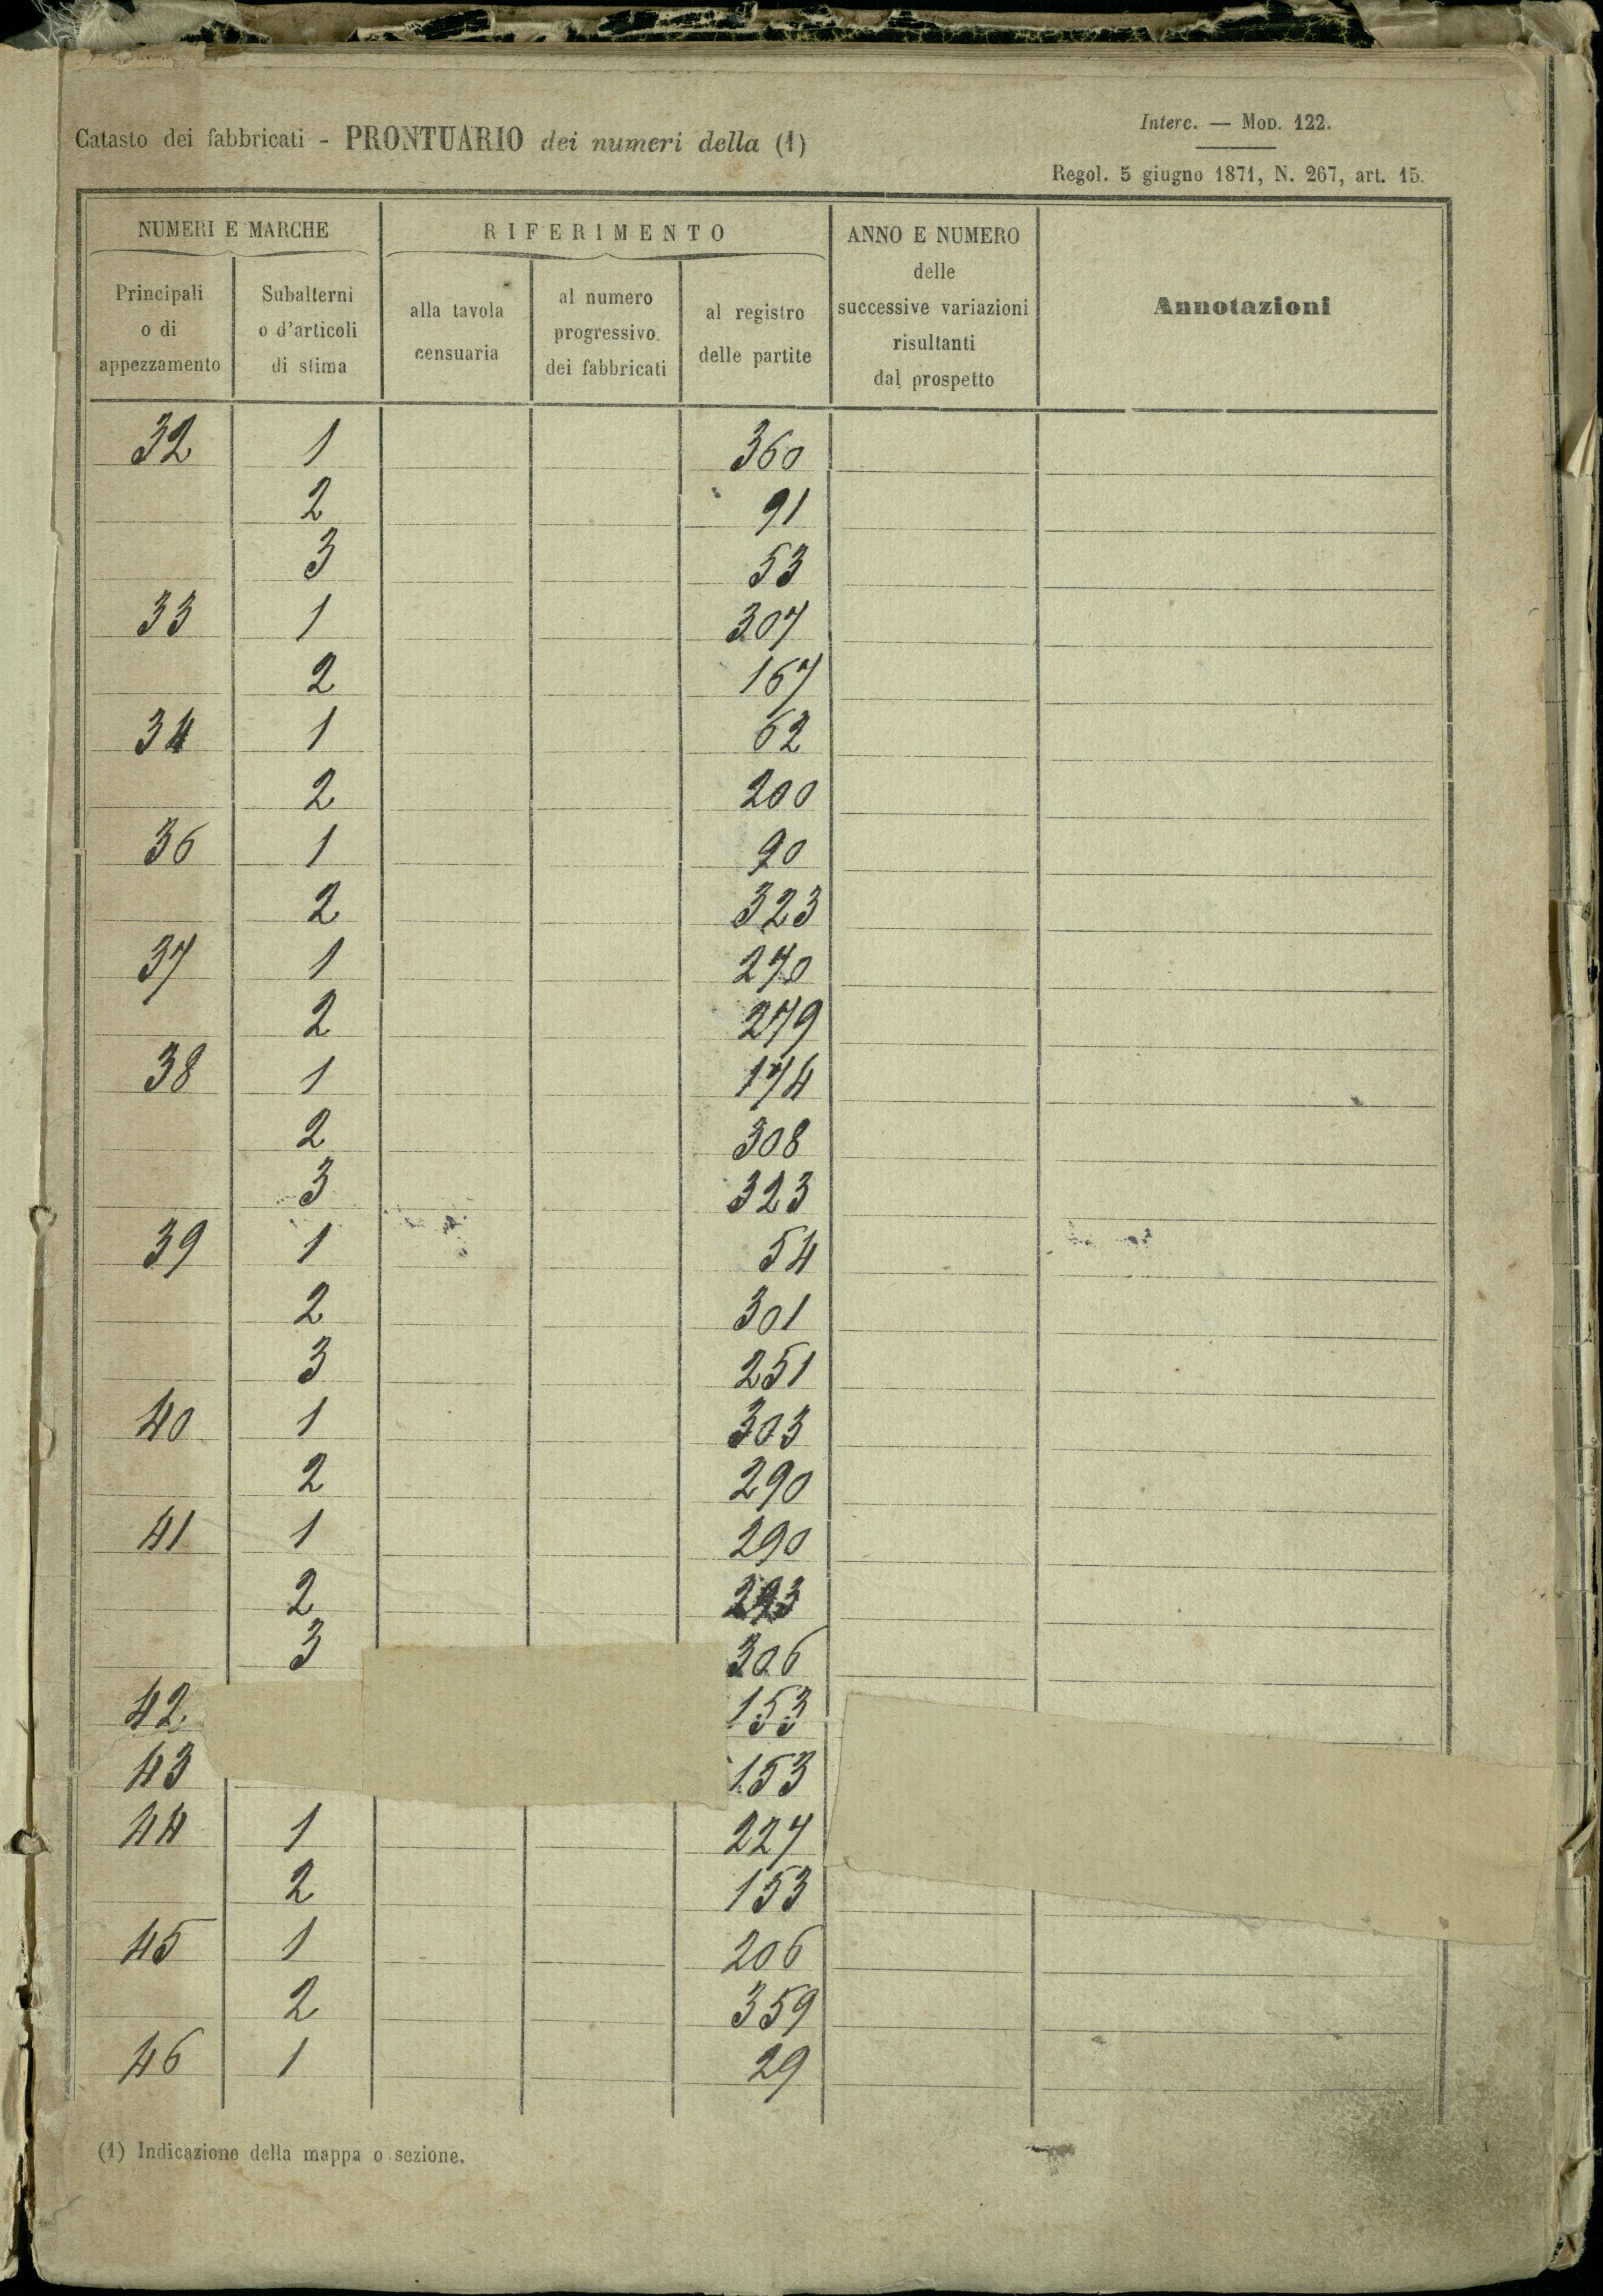 Catasto dei fabbricati - PRONTUARIO dei numeri della (1)
Interc. — Mod. 122.
Regol. 5 giugno 1871, N. 267, art. 15.
NUMERI E MARCHE
RIFERIMENTO
ANNO E NUMERO
delle
successive variazioni
risultanti
dal prospetto
Annotazioni
Principali
o di
appezzamento
Subalterni
o d'articoli
di stima
alla tavola
censuaria
al numero
progressivo
dei fabbricati
al registro
delle partite
32 1 360
2 91
3 53
33 1 307
2 167
34 1 62
2 200
36 1 90
2 323
37 1 270
2 279
38 1 174
2 308
3 323
39 1 54
2 301
3 251
40 1 303
2 290
41 1 290
2
3 306
42 153
43 153
44 1 227
2 153
45 1 206
2 359
46 1 29
(1) Indicazione della mappa o sezione.